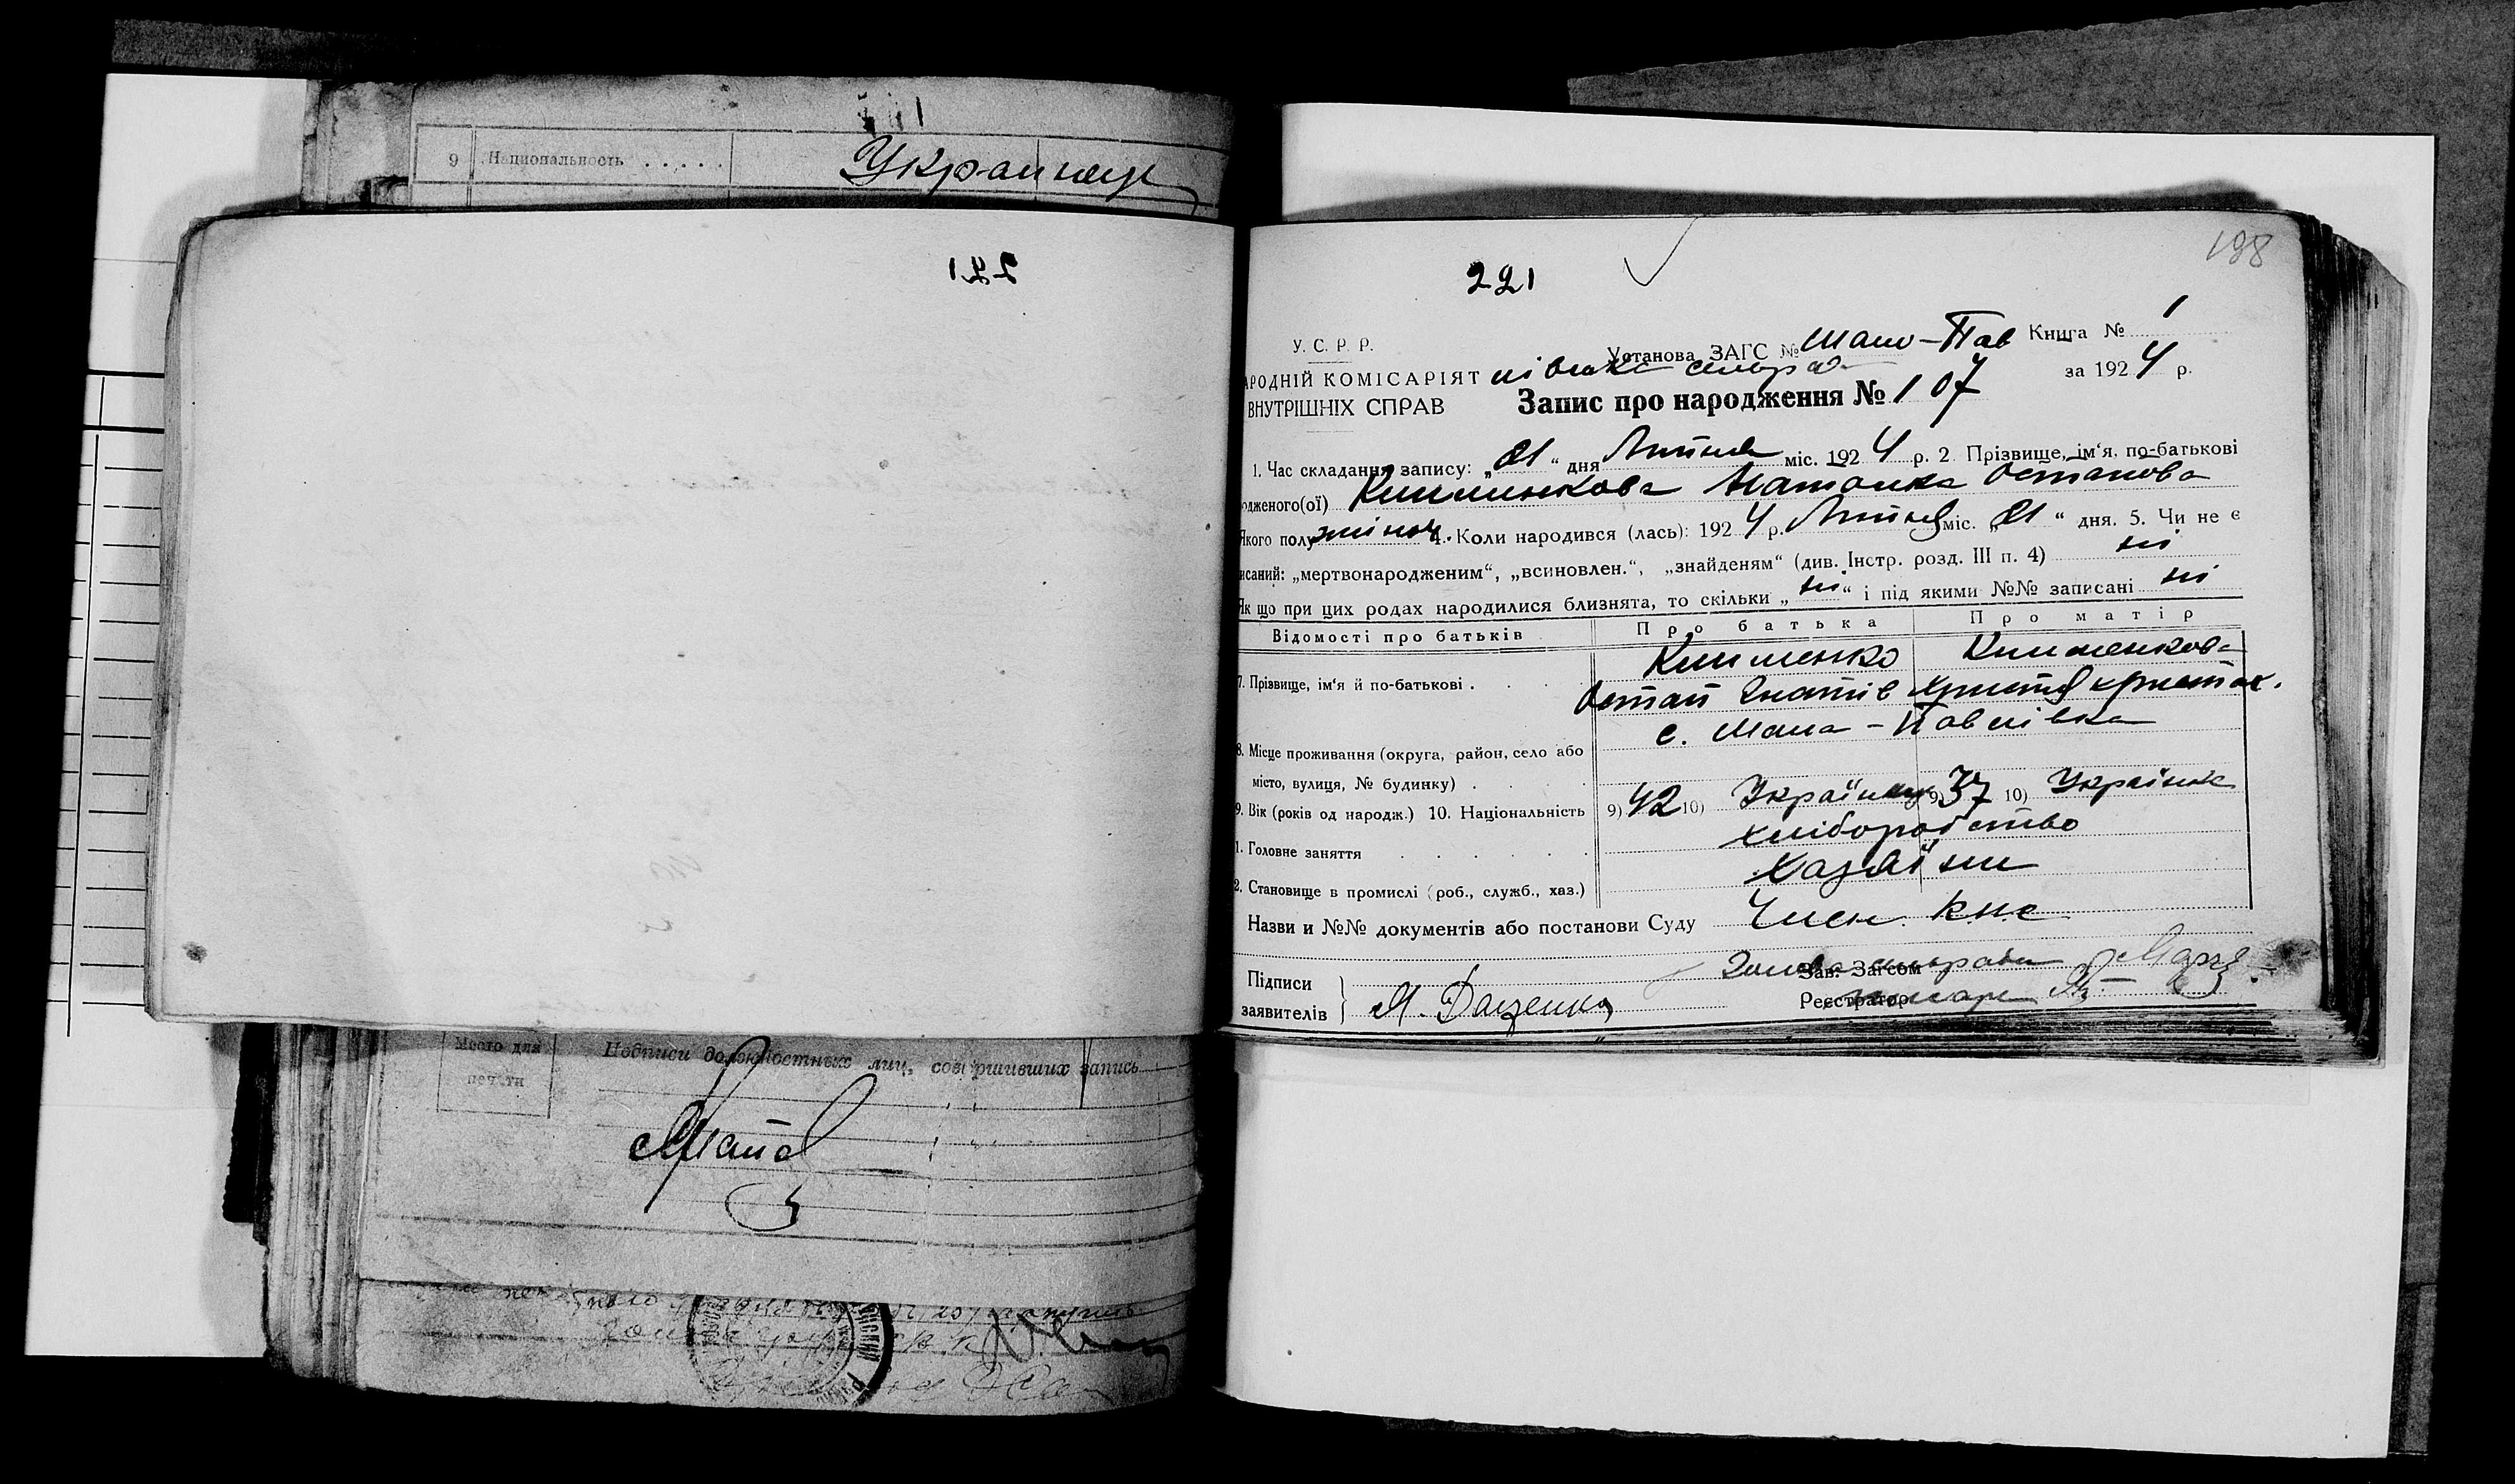 9 Национальность . . . . . Украинец
221
198
221
У. С. Р. Р.
Установа ЗАГС № Мало-Пав Книга № 1
АРОДНІЙ КОМІСАРІЯТ лівська сільрада за 1924 р.
ВНУТРІШНІХ СПРАВ Запис про народження № 107
1. Час складання запису: „21“ дня Липня міс. 1924 р. 2 Прізвище, ім‘я, по-батькові
одженого(ої) Клименкова Наталка Остапова
Якого полу жіноч. 4. Коли народився (лась): 1924 р. Липня міс. „21“ дня. 5. Чи не є
исаний: „мертвонародженим“, „всиновлен.“, „знайденям“ (див. Інстр. розд. III п. 4) ні
Як що при цих родах народилися близнята, то скільки „ні“ і під якими №№ записані ні
Відомості про батьків Про батька Про матір
Клименко Клименкова
7. Прізвище, ім‘я й по-батькові . . . . Остап Гнатів Христя
с. Мала-Павлівка
8. Місце проживання (округа, район, село або
місто, вулиця, № будинку) . .
9. Вік (років од народж.) 10. Національність 9) 42 10) Українець 9) 37 10) Українка
1. Головне заняття . . . . . . хліборобство
2. Становище в промислі (роб., служб., хаз.) Хазяїни
Назви и №№ документів або постанови Суду Член К.Н.С
Голова сільради
Зав. Загсом
Підписи
заявителів } Я. Даценко
Реєстратор
Место для
печати
Подписи должностных лиц, совершивших запись